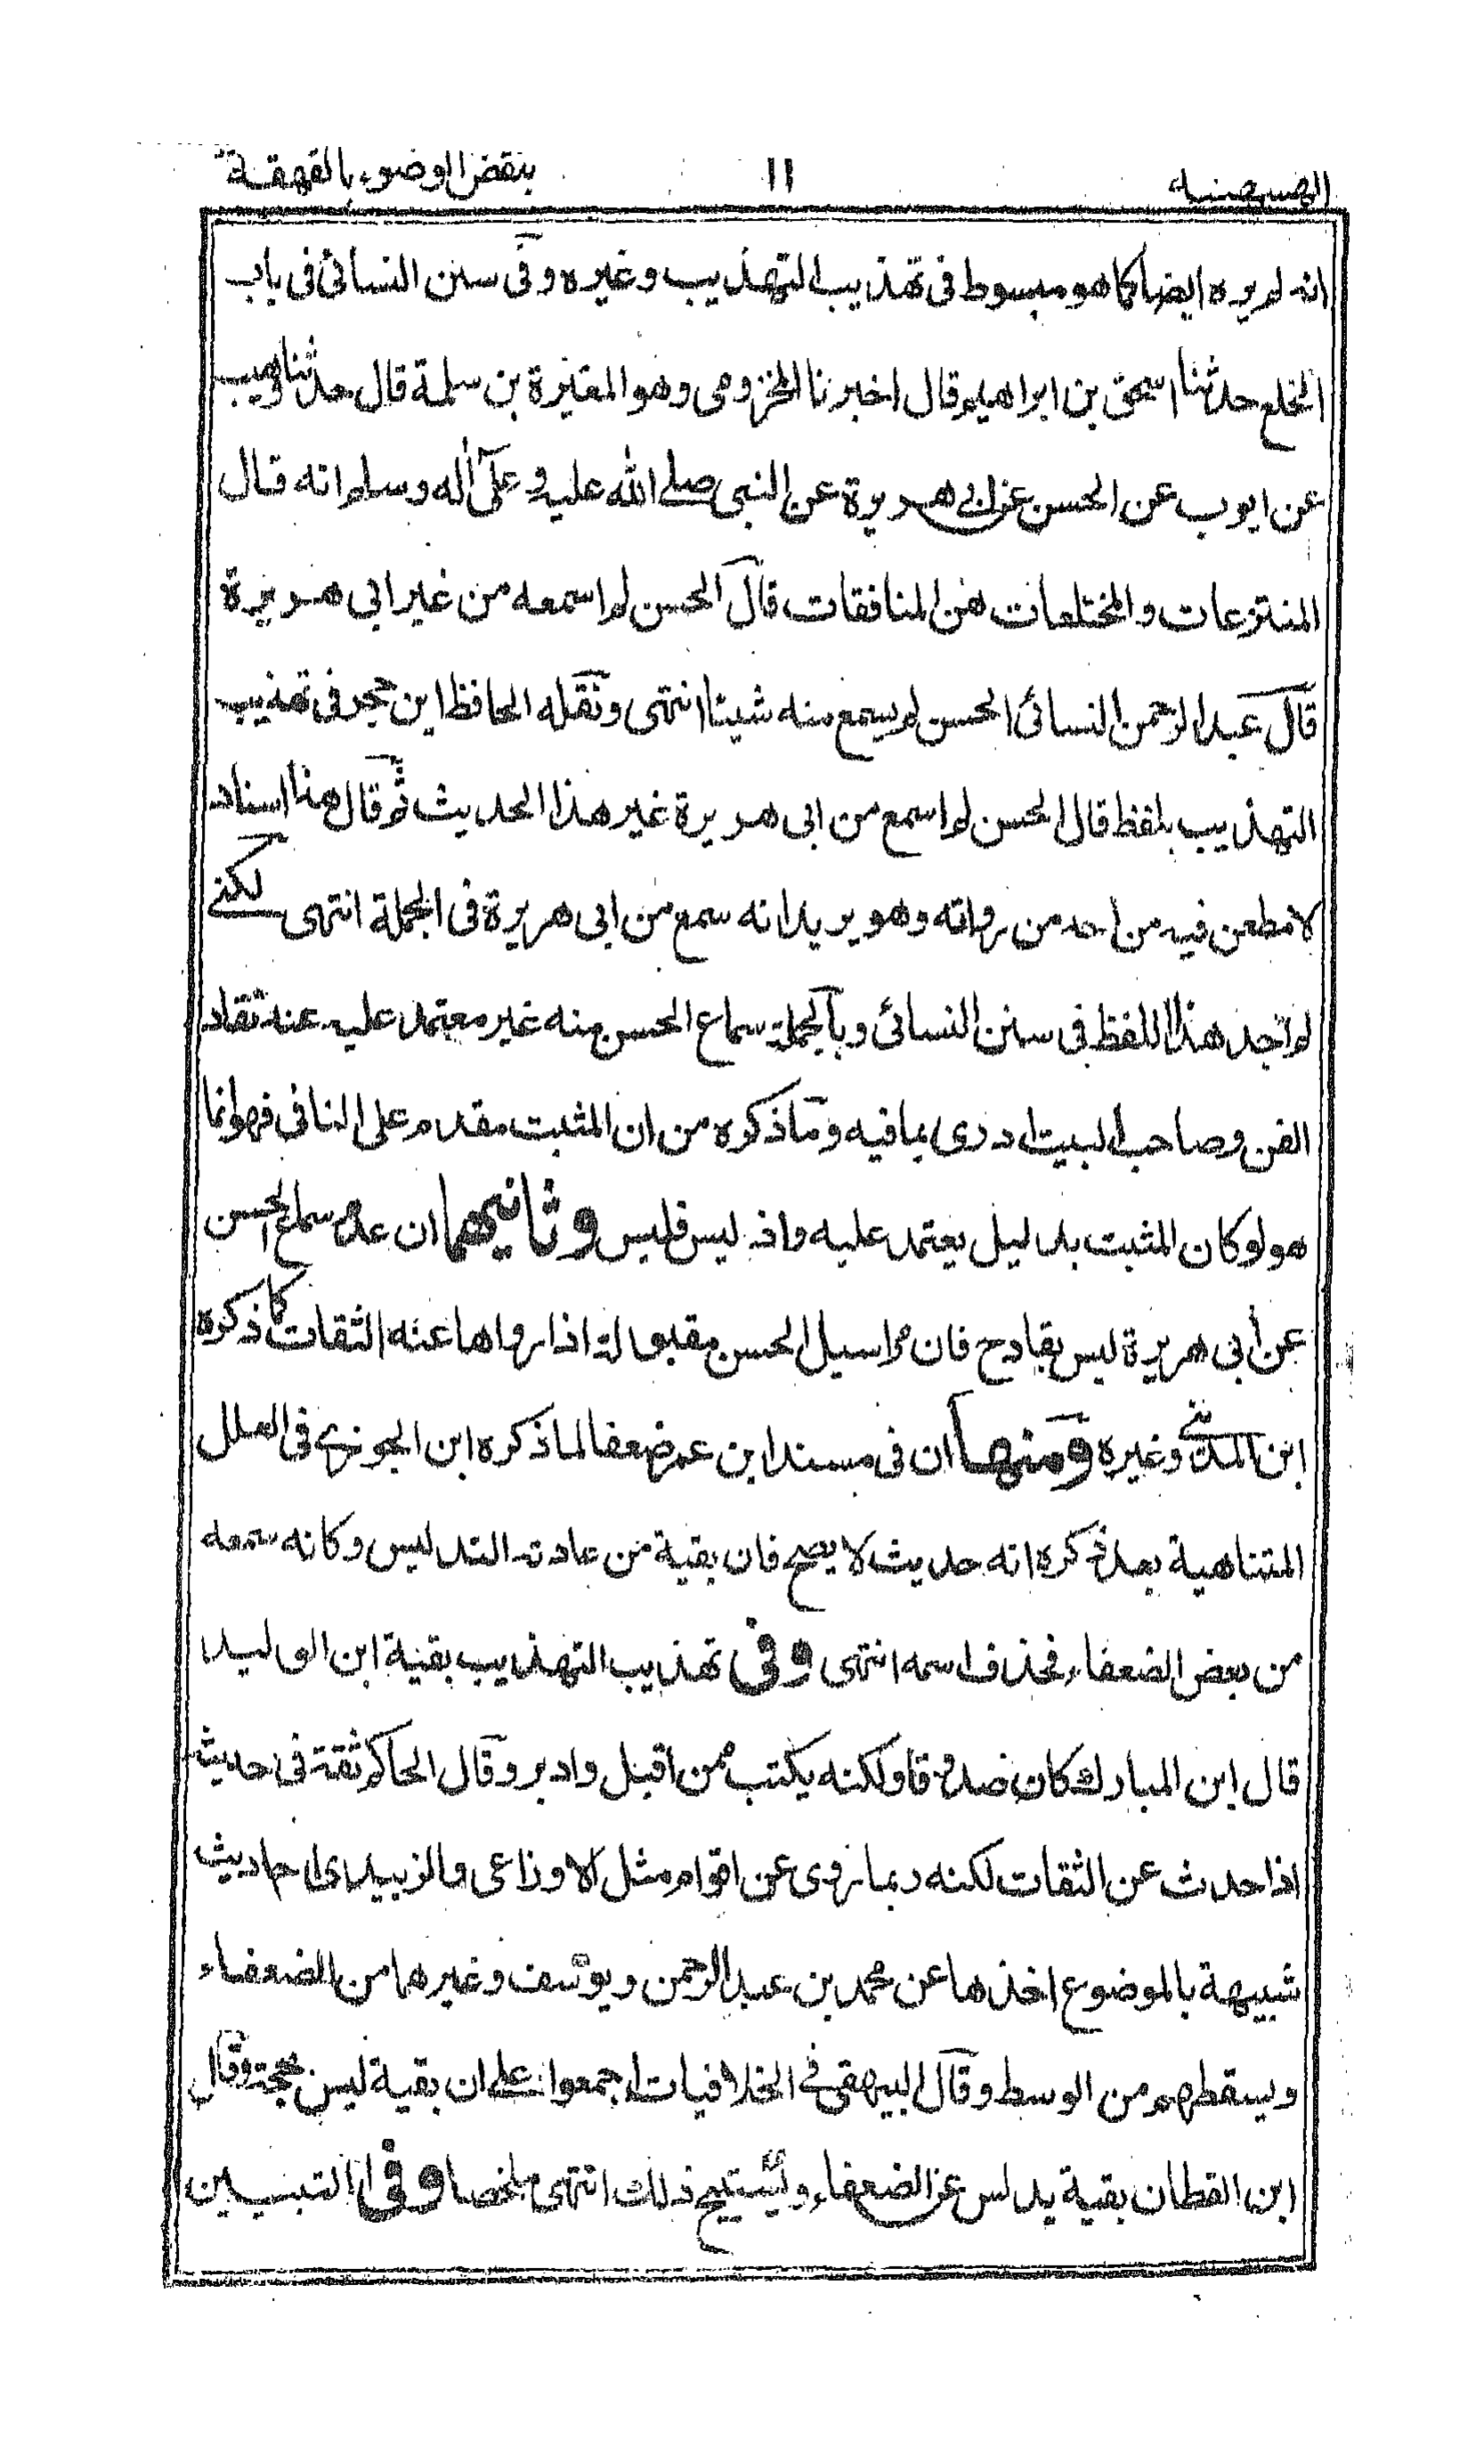 الهسهسة ١١ بنقض الوضوء بالقهقهة
انه لم يره ايضا كما هو مبسوط فى تهذيب التهذيب وغيره وفى سنن النسائى فى باب
الخلع حدثنا اسحق بن ابراهيم قال اخبرنا المخزومى وهو المغيرة بن سلمة قال حدثنا وهيب
عن ايوب عن الحسن عن ابى هريرة عن النبى صلے الله عليه وعلى اله وسلم انه قال
المنتزعات والمختلعات هن المنافقات قال الحسن لم اسمعه من غير ابى هريرة
قال عبد الرحمن النسائى الحسن لم يسمع منه شيئا انتهى ونقله الحافظ ابن حجر فى تهذيب
التهذيب بلفظ قال الحسن لم اسمع من ابى هريرة غير هذا الحديث ثم قال هذا اسناد
لا مطعن فيه من احد من رواته وهو يريد انه سمع من ابى هريرة فى الجملة انتهى لكنے
لم اجد هذا اللفظ فى سنن النسائى وبالجملة سماع الحسن منه غير معتمد عليه عند نقاد
الفن وصاحب البيت ادرى بما فيه وما ذكره من ان المثبت مقدم على النافى فهو انما
هو لو كان المثبت بدليل يعتمد عليه واذ ليس فليس وثانيهما ان عدم سماع الحسن
عن ابى هريرة ليس بقادح فان مراسيل الحسن مقبولة اذا رواها عنه الثقات كما ذكره
ابن المدينے وغيره ومنها ان فى مسند ابن عمر ضعفا لما ذكره ابن الجوزے فى العلل
المتناهية بعد ذكره انه حديث لا يصح فان بقية من عادته التدليس وكانه سمعه
من بعض الضعفاء فحذف اسمه انتهى وفى تهذيب التهذيب بقية ابن الوليد
قال ابن المبارك كان صدوقا ولكنه يكتب عمن اقبل وادبر وقال الحاكم ثقة فى حديث
اذا حدث عن الثقات لكنه ربما روى عن اقوام مثل الاوزاعى والزبيدى احاديث
شبيهة بالموضوع اخذها عن محمد بن عبد الرحمن ويوسف وغيرهما من الضعفاء
ويسقطهم من الوسط وقال البيهقى فے الخلافيات اجمعوا علے ان بقية ليس بحجة وقال
ابن القطان بقية يدلس عن الضعفاء ويستبيح ذلك انتهى ملخصا وفى التبيين